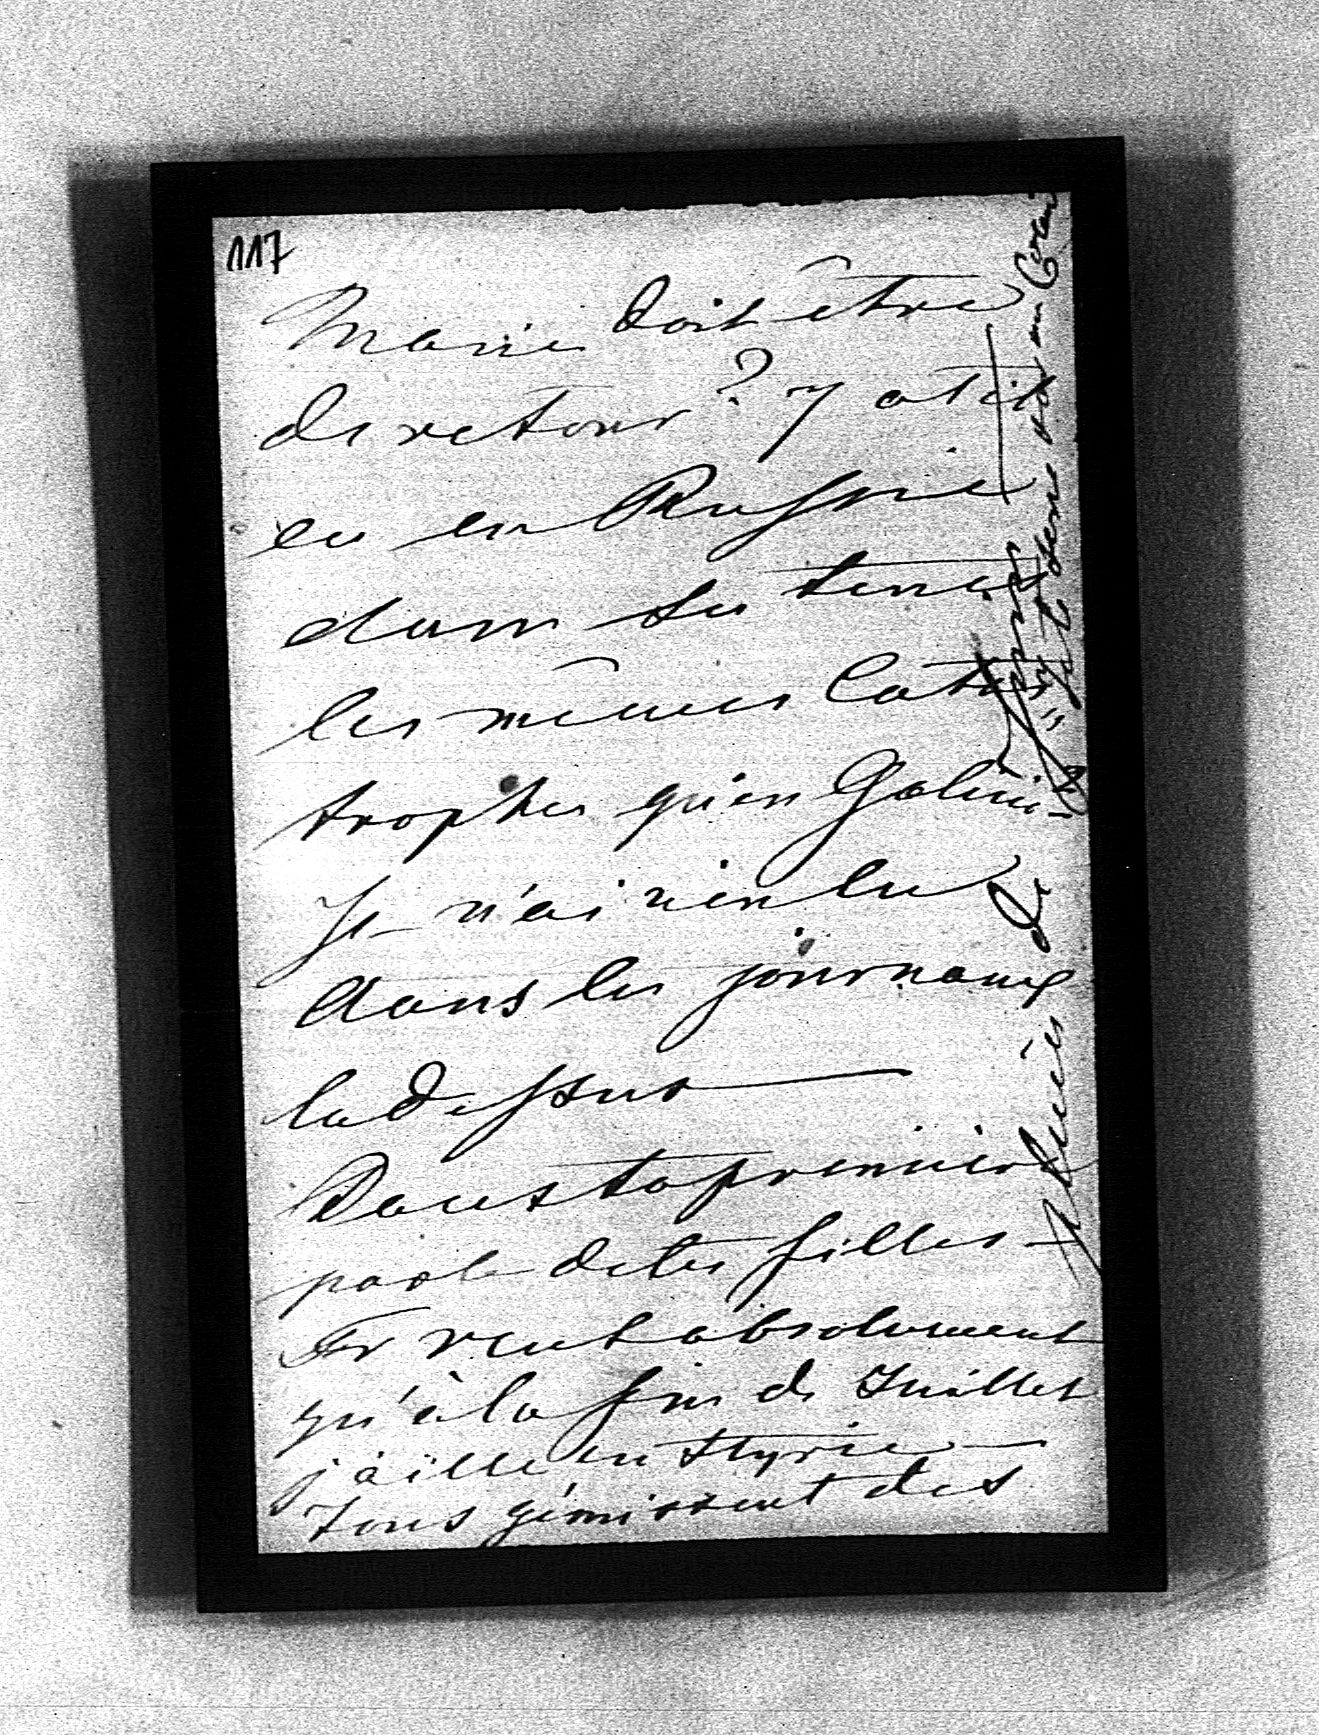 117
Marie doit être
de retour? y a t il
eu en Russie
dans ses terres
les mêmes catas
trophes qu'en Galicie
Je n'ai rien lu
dans les journaux
la dessus
Dans ta premiere
parle de tes filles
Fr veut absolument
qu'à la fin de Juillet
j'aille en Styrie
Tous gémissent des
pluies de